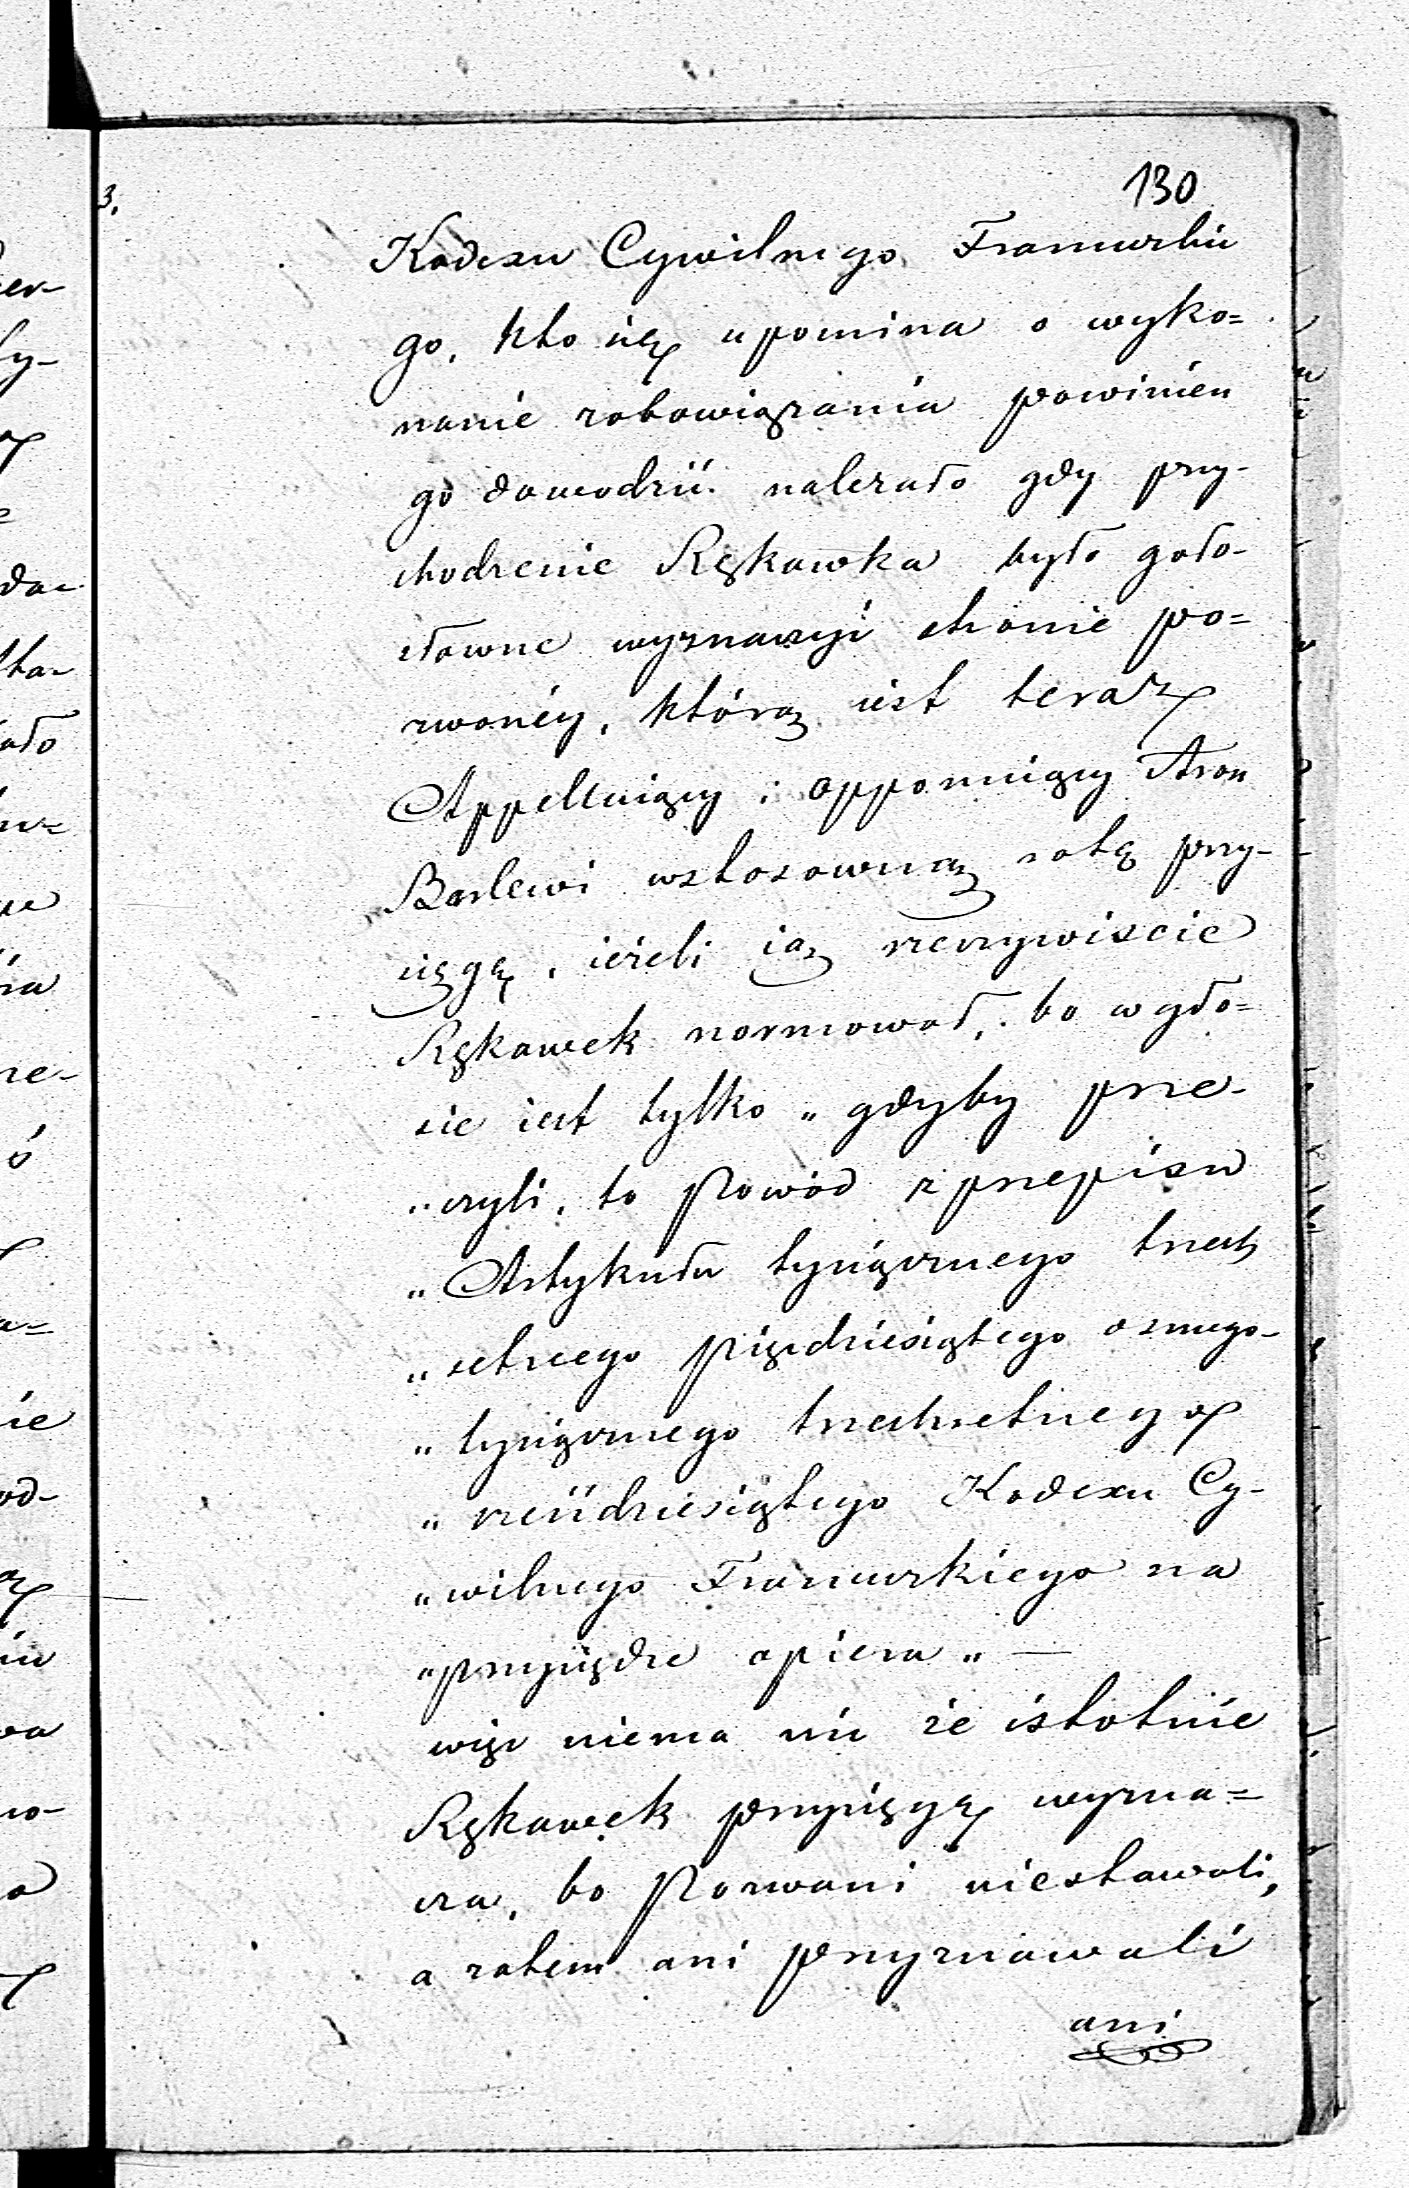 130
Kodexu Cywilnego Francuzkie
go, kto się upomina o wyko=
nanie zobowiązania powinien
go dowodzić. należało gdy przy-
chodzenie Rękawka było goło-
słowne wyznaczyć stronie po=
zwanéy, którą iest teraz
Appelluiący i opponuiący Aron
Berlewi wstosowną rotę przy-
sięgę, ieżeli ią rzeczywiscie
Rękawek normował, bo w gło=
sie iest tylko „ gdyby prze-
„ czyli, to Powód z przepisu
„ Artykułu tysiącznego trzech
„ setnego pięćdziesiątego osmego-
„ tysiącznego trzechsetnego
„ sześćdziesiątego Kodexu Cy-
„ wilnego Francuzkiego na
„ przysiędze opiera „ —
więc niema nic że istotnie
Rękawek przysięgę wyzna=
cza, bo Pozwani niestawali,
a zatem ani przyznawali
ani